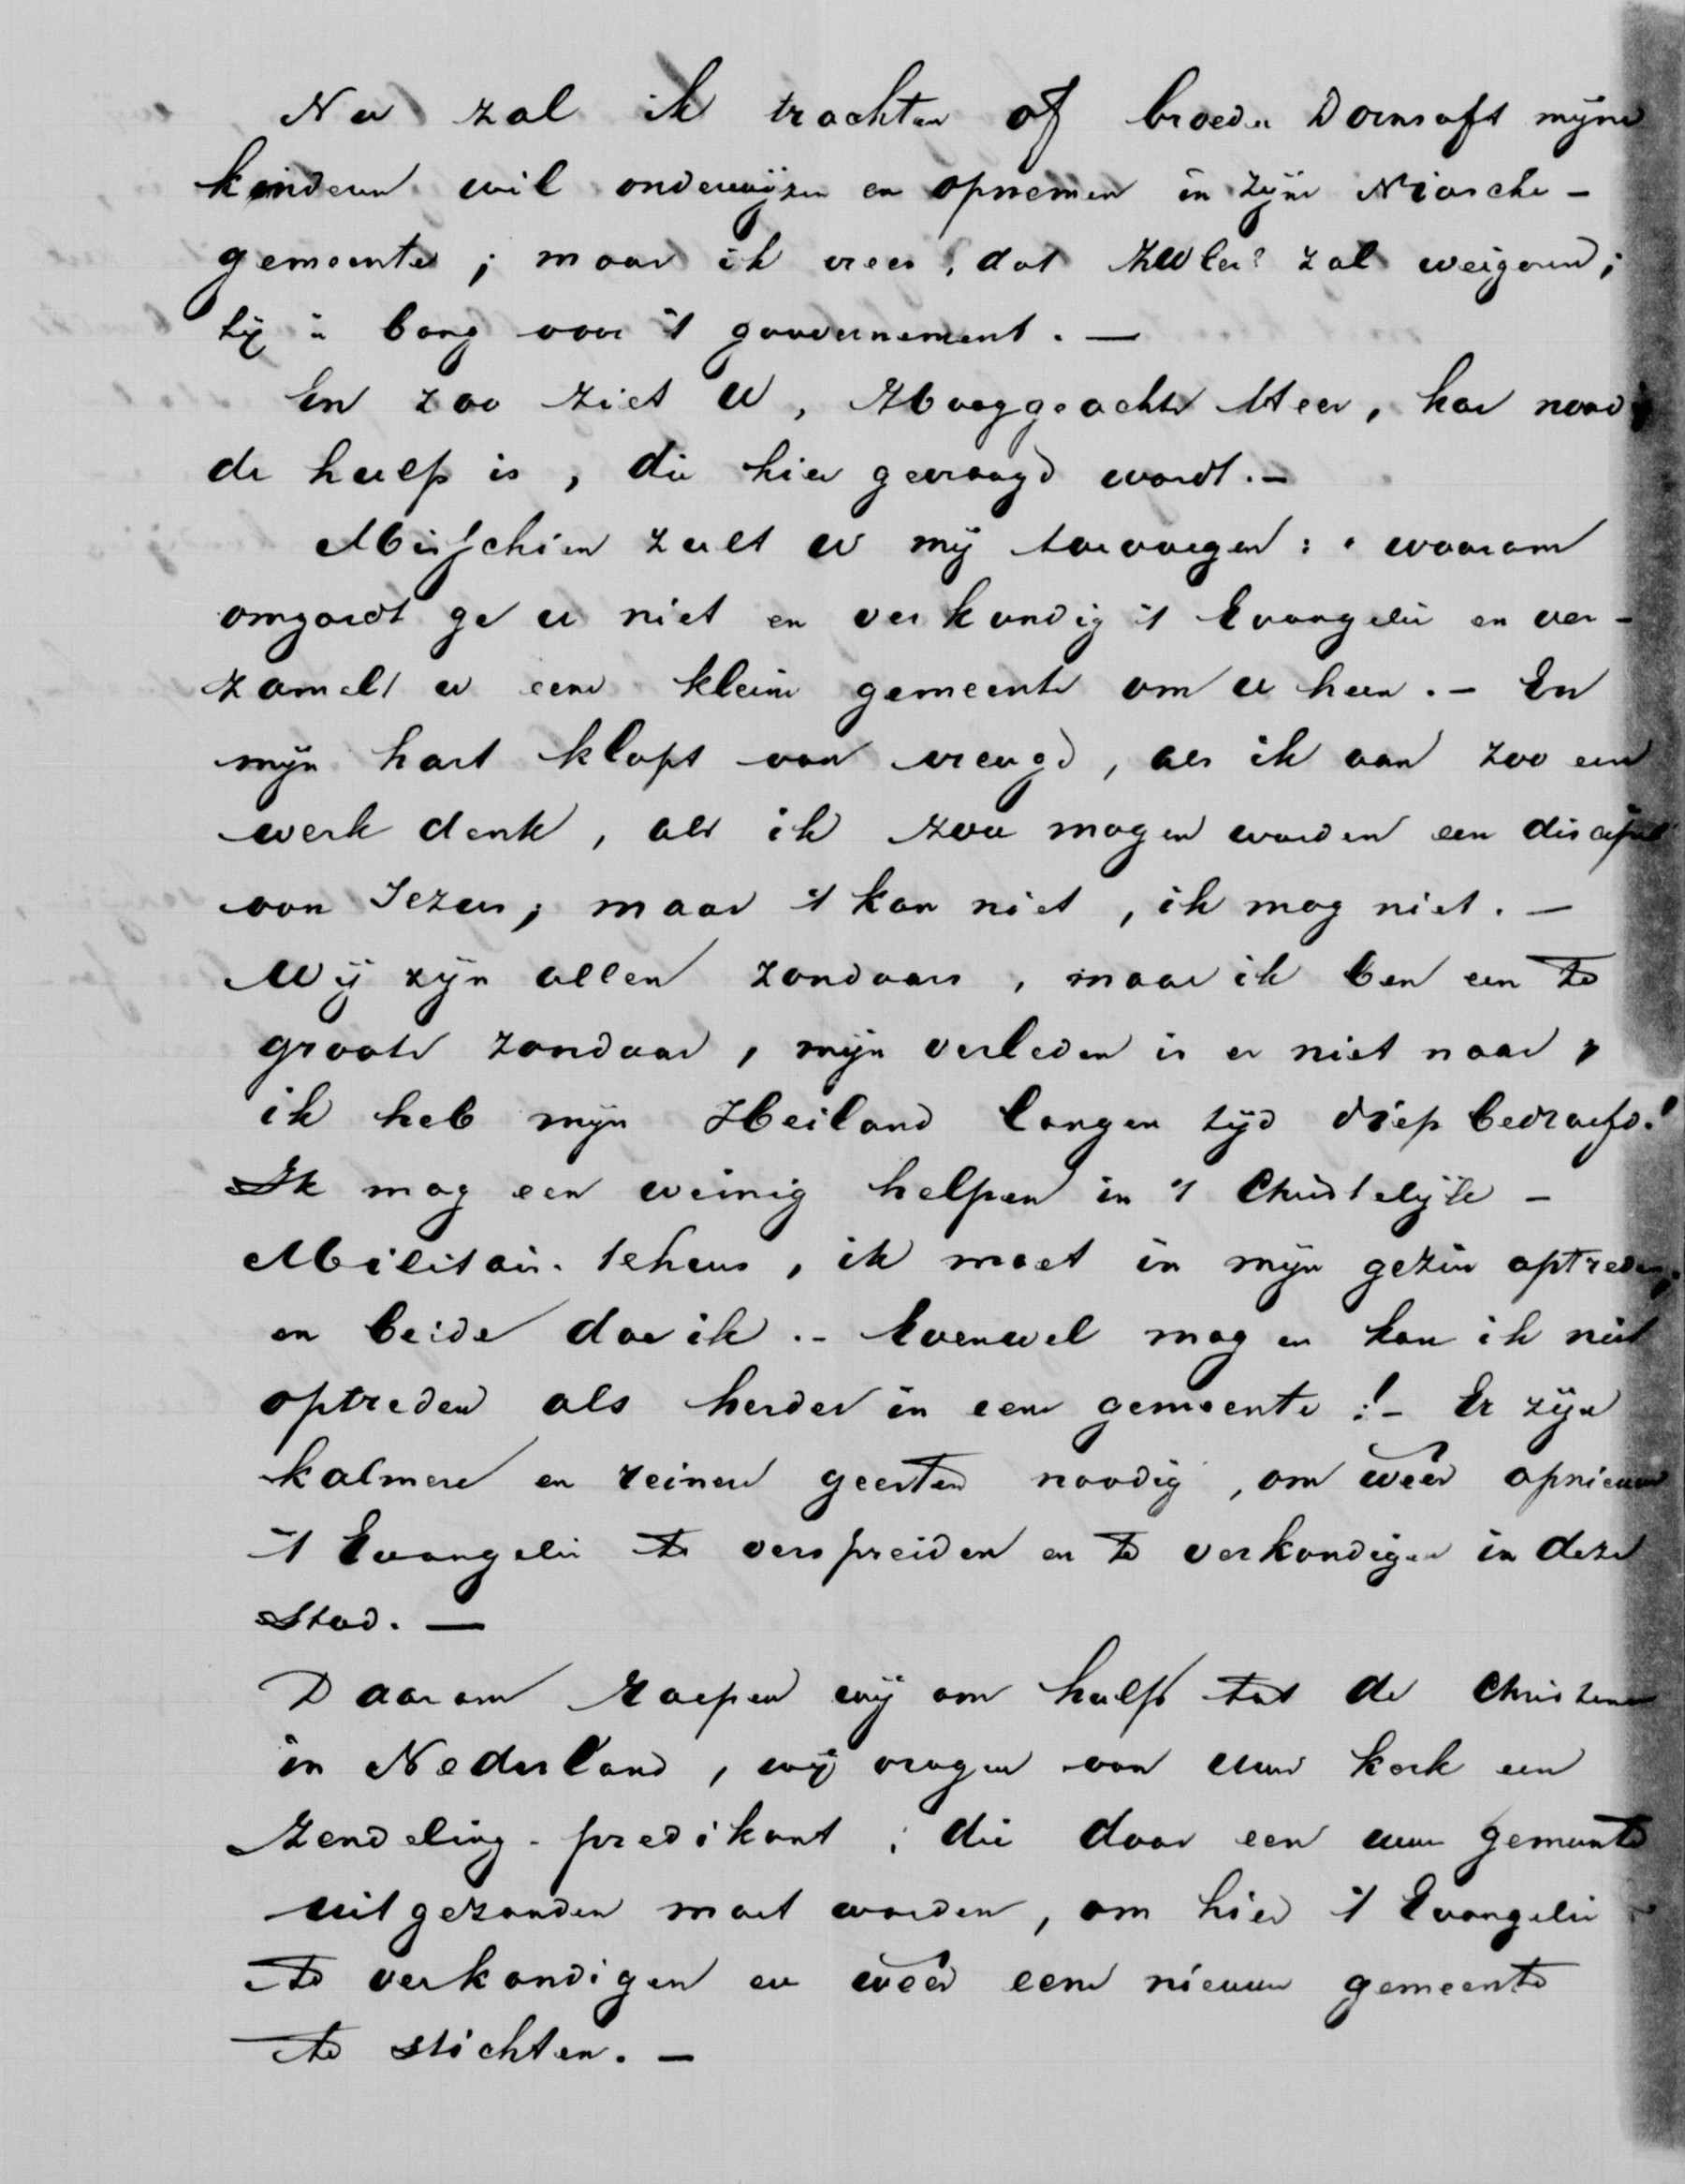 Nu zal ik trachten of broeder Dornsaft mijne
kinderen wil onderwijzen en opnemen in zijne Niassche-
gemeente; maar ik vrees, dat ZWEer? zal weigeren;
hij is bang voor 't gouvernement. —
En zoo ziet U, Hooggeachte Heer, hoe noodig
de hulp is, die hier gevraagd wordt. -
Misschien zult U mij toevoegen: "waarom
omgordt ge u niet en verkondig 't Evangelie en ver-
zamelt u eene kleine gemeente om u heen. - En
mijn hart klopt van vreugd, als ik aan zoo een
werk denk, als ik zou mogen worden een discipel
van Jezus; maar 't kan niet, ik mag niet. —
Wij zijn allen zondaars, maar ik ben een te
groote zondaar, mijn verleden is er niet naar,
ik heb mijn Heiland langen tijd diep bedroefd!
Ik mag een weinig helpen in 't Christelijk -
Militair-tehuis, ik moet in mijn gezin optreden;
en beide doe ik. - Evenwel mag en kan ik niet
optreden als herder in eene gemeente! - Er zijn
kalmere en reinere geesten noodig, om weêr opnieuw
't Evangelie te verspreiden en te verkondigen in deze
Stad. —
Daarom roepen wij om hulp tot de Christenen
in Nederland, wij vragen van uwe kerk een
zendeling-predikant, die door een uwer gemeente
uitgezonden moet worden, om hier 't Evangelie
te verkondigen en weêr eene nieuwe gemeente
te stichten. -